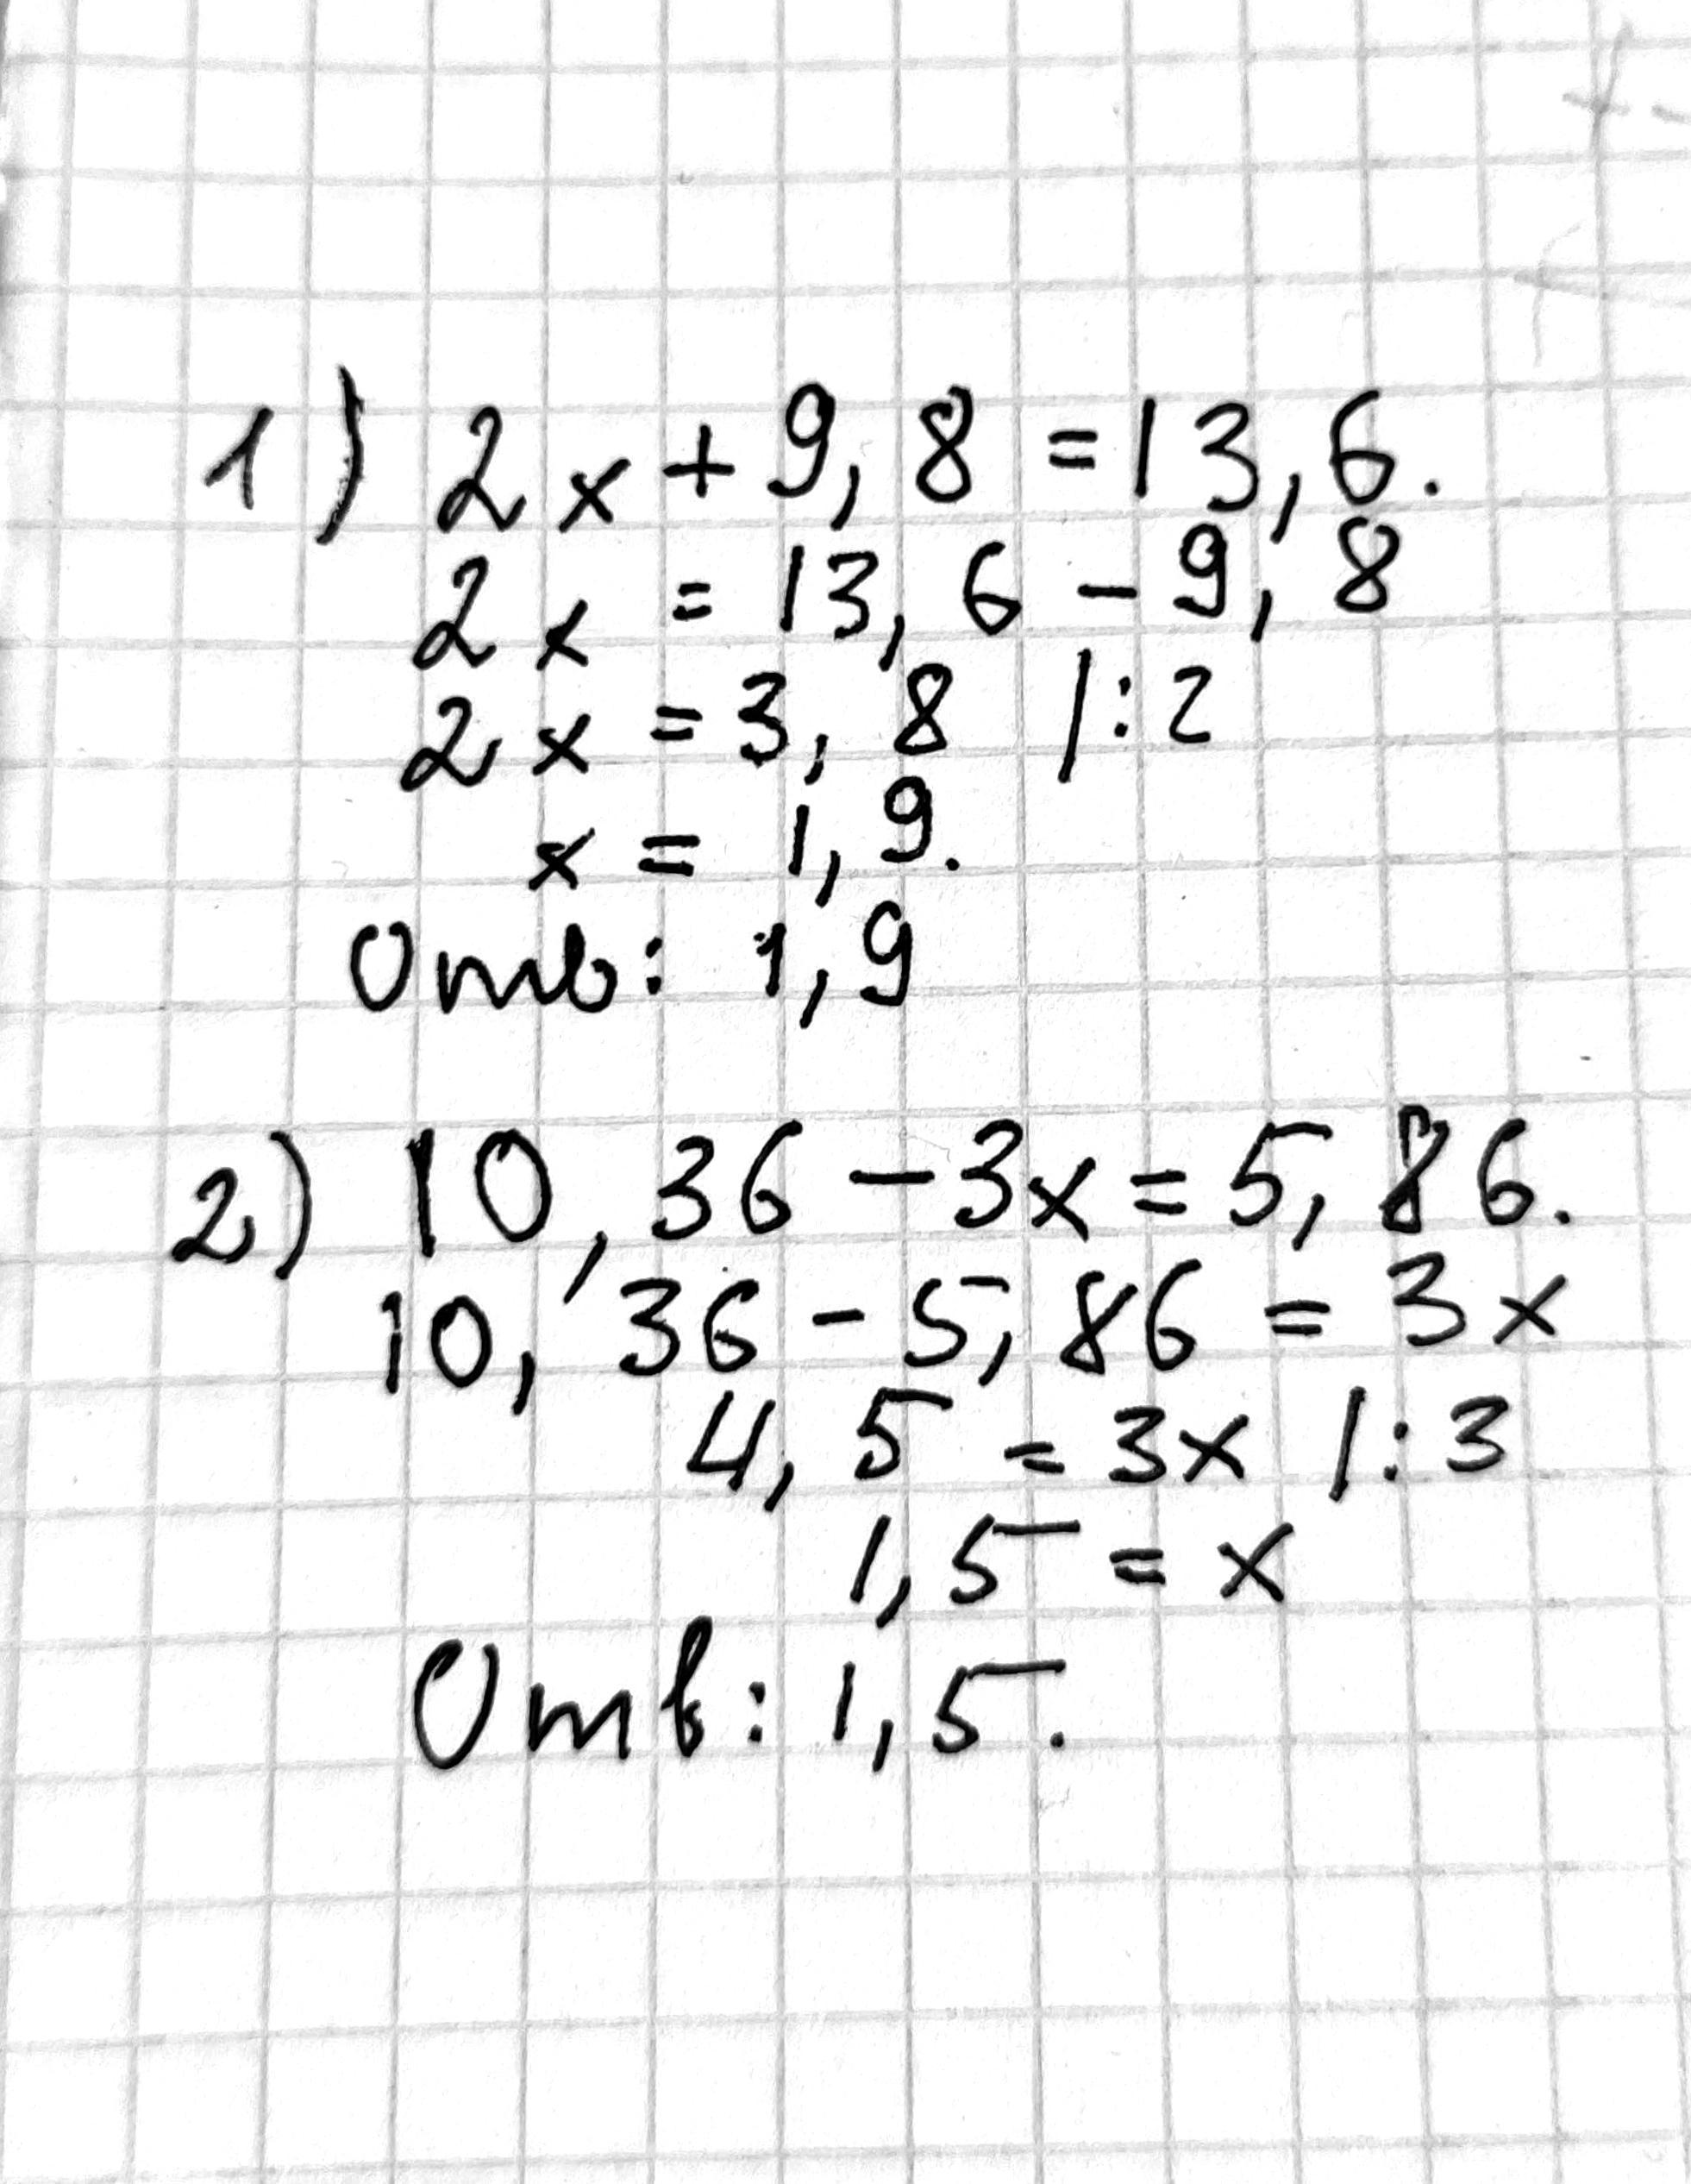 1) 2x + 9,8 = 13,6.
2x = 13,6 - 9,8
2x = 3,8 |:2
x = 1,9.
Отв: 1,9
2) 10,36 - 3x = 5,86.
10,36 - 5,86 = 3x
4,5 = 3x |:3
1,5 = x
Отв: 1,5.